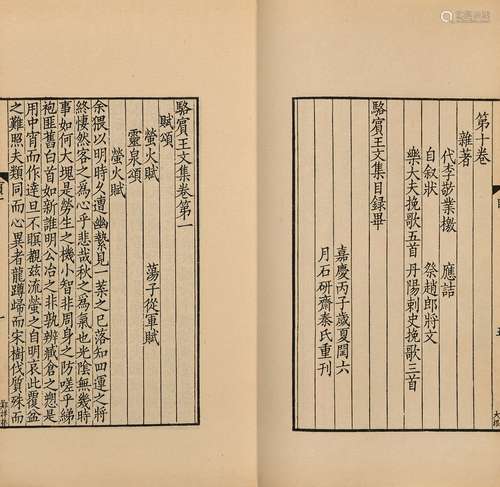 第十卷
雜著
代李敬業檄 應詰
自叙狀 祭趙郎將文
樂大夫挽歌五首 丹陽刺史挽歌三首
駱賓王文集目録畢
嘉慶丙子歲夏閏六
月石研齋秦氏重刊
駱賓王文集卷第一
賦頌
螢火賦 蕩子從軍賦
靈泉頌
螢火賦
余猥以明時久遭幽縶見一葉之已落知四運之將
終悽然客之爲心乎悲哉秋之爲氣也光陰無幾時
事如何大塊是勞生之機小智非周身之防嗟乎綈
袍匪舊白首如新誰明公冶之非孰辨臧倉之愬是
用中宵而作達旦不瞑覩兹流螢之自明哀此覆盆
之難照夫類同而心異者龍蹲歸而宋樹伐質殊而